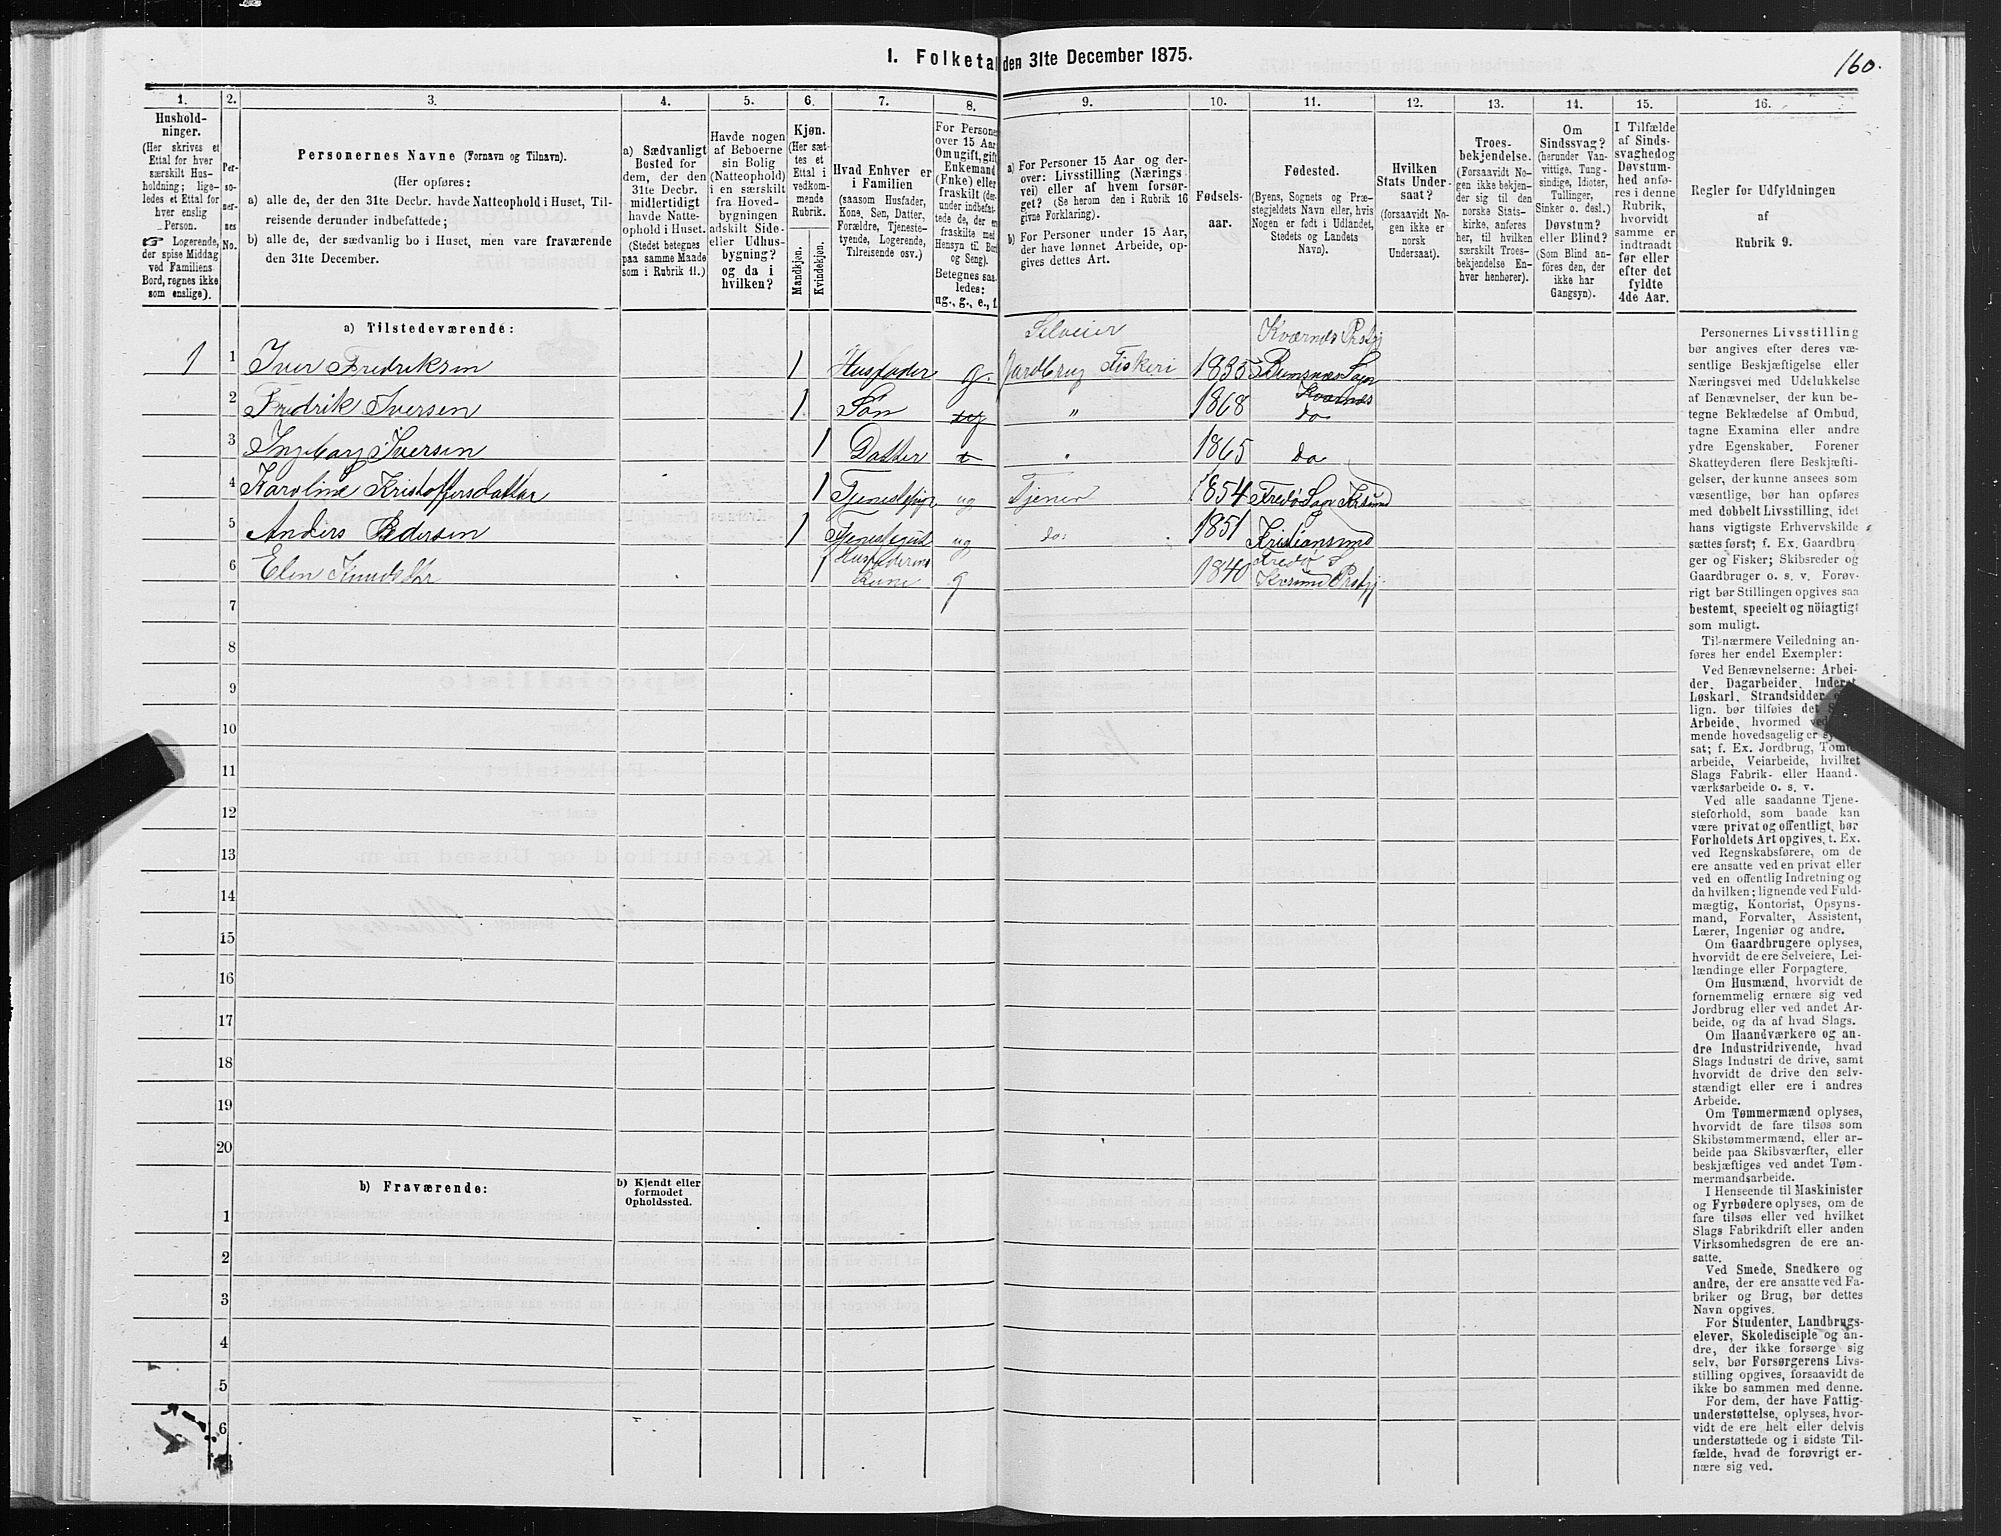 1. Folketal den 31te December 1875.
160.
1.
2.
3.
4.
5.
6.
7.
8.
9.
10.
11.
12.
13.
14.
15.
16.
Hushold-
ninger.
(Her skrives et
Ettal for hver
særskilt Hus-
holdning; lige-
ledes et Ettal for
hver enslig
Person.
☞ Logerende,
der spise Middag
ved Familiens
Bord, regnes ikke
som enslige).
Per-
so-
ner-
nes
No.
Personernes Navne (Fornavn og Tilnavn).
(Her opføres:
a) alle de, der den 31te Decbr. havde Natteophold i Huset, Til-
reisende derunder indbefattede;
b) alle de, der sædvanlig bo i Huset, men vare fraværende
den 31te December.
a) Sædvanligt
Bosted for
dem, der den
31te Decbr.
midlertidigt
havde Natte-
ophold i Huset.
(Stedet betegnes
paa samme Maade
som i Rubrik 11.)
Havde nogen
af Beboerne
sin Bolig
(Natteophold)
i en særskilt
fra Hoved-
bygningen
adskilt Side-
eller Udhus-
bygning?
og da i
hvilken?
Kjøn.
(Her sæt-
tes et
Ettal i
vedkom-
mende
Rubrik.
Mandkjøn.
Kvindekjøn.
Hvad Enhver er
i Familien
(saasom Husfader,
Kone, Søn, Datter,
Forældre, Tjeneste-
tyende, Logerende,
Tilreisende osv.)
For Personer
over 15 Aar:
Om ugift, gift,
Enkemand
(Enke) eller
fraskilt (der-
under indbefat-
tede de, der ere
fraskilte med
Hensyn til Bord
og Seng).
Betegnes saa-
ledes:
ug., g., e., f.
a) For Personer 15 Aar og der-
over: Livsstilling (Nærings
vei) eller af hvem forsør-
get? (Se herom den i Rubrik 16
givne Forklaring).
b) For Personer under 15 Aar,
der have lønnet Arbeide, op-
gives dettes Art.
Fødsels-
aar.
Fødested.
(Byens, Sognets og Præ-
stegjeldets Navn eller, hvis
Nogen er født i Udlandet,
Stedets og Landets
Navn).
Hvilken
Stats Under-
saat?
(forsaavidt No-
gen ikke er
norsk
Undersaat).
Troes-
bekjendelse.
(Forsaavidt No-
gen ikke bekjen-
der sig til den
norske Stats-
kirke, anføres
her, til hvilken
særskilt Troes-
bekjendelse En-
hver henhører).
Om
Sindssvag?
(herunder Van-
vittige, Tung-
sindige, Idioter,
Tullinger,
Sinker o. desl.)
Døvstum?
eller Blind?
(Som Blind an-
føres den, der
ikke har
Gangsyn).
I Tilfælde
af Sinds-
svaghed og
Døvstum-
hed anfø-
res i denne
Rubrik,
hvorvidt
samme er
indtraadt
før eller
efter det
fyldte
4de Aar.
Regler for Udfyldningen
af
Rubrik 9.
a) Tilstedeværende:
Selveier
Kværnes Prstgj
1 1 Iver Fredriksen 1 Husfader g. Jordbrug Fiskeri 1835 Bremsnæs Sogn
Kværnes
2 Fredrik Iversen 1 Søn " 1868 do
3 Ingeborg Iversen 1 Datter " 1865 do
4 Karoline Kristoffersdatter 1 Tjenestepige ug Tjener 1854 Fredø Sogn Krsund
5 Anders Pedersen 1 Tjenestegut ug do 1851 Kristiansund
6 Elen Knudsdtr 1 Husfaderens Kone g 1840 Fredø S Krsund Prstgj
7
8
9
10
11
12
13
14
15
16
17
18
19
20
b) Fraværende:
b) Kjendt eller
formodet
Opholdssted.
1
2
3
4
5
6
Personernes Livsstilling
bør angives efter deres væ-
sentlige Beskjæftigelse eller
Næringsvei med Udelukkelse
af Benævnelser, der kun be-
tegne Beklædelse af Ombud,
tagne Examina eller andre
ydre Egenskaber. Forener
Skatteyderen flere Beskjæfti-
gelser, der kunne ansees som
væsentlige, bør han opføres
med dobbelt Livsstilling, idet
hans vigtigste Erhvervskilde
sættes først; f. Ex. Gaardbru-
ger og Fisker; Skibsreder og
Gaardbruger o. s. v. Forøv-
rigt bør Stillingen opgives saa
bestemt, specielt og nöiagtigt
som muligt.
Til nærmere Veiledning an-
føres her endel Exempler:
Ved Benævnelserne: Arbei-
der, Dagarbeider, Inderst,
Løskarl, Strandsidder
lign. bør tilføies det
Arbeide, hvormed
mende hovedsagelig er
sat; f. Ex. Jordbrug, Tomte-
arbeide, Veiarbeide, hvilket
Slags Fabrik- eller Haand-
værksarbeide o. s. v.
Ved alle saadanne Tjene-
steforhold, som baade kan
være privat og offentligt, bør
Forholdets Art opgives, t. Ex.
ved Regnskabsførere, om de
ere ansatte ved en privat eller
ved en offentlig Indretning og
da hvilken; lignende ved Fuld-
mægtig, Kontorist, Opsyns-
mand, Forvalter, Assistent,
Lærer, Ingeniør og andre.
Om Gaardbrugere oplyses,
hvorvidt de ere Selveiere, Lei-
lændinge eller Forpagtere.
Om Husmænd, hvorvidt de
fornemmelig ernære sig ved
Jordbrug eller ved andet Ar-
beide, og da af hvad Slags.
Om Haandværkere og an-
dre Industridrivende, hvad
Slags Industri de drive, samt
hvorvidt de drive den selv-
stændigt eller ere i andres
Arbeide.
Om Tømmermænd oplyses,
hvorvidt de fare tilsøs som
Skibstømmermænd, eller ar-
beide paa Skibsværfter, eller
beskjæftiges ved andet Tøm-
mermandsarbeide.
I Henseende til Maskinister
og Fyrbødere oplyses, om de
fare tilsøs eller ved hvilket
Slags Fabrikdrift eller anden
Virksomhedsgren de ere an-
satte.
Ved Smede, Snedkere og
andre, der ere ansatte ved Fa-
briker og Brug, bør dettes
Navn opgives.
For Studenter, Landbrugs-
elever, Skoledisciple og an-
dre, der ikke forsørge sig
selv, bør Forsørgerens Livs-
stilling opgives, forsaavidt de
ikke bo sammen med denne.
For dem, der have Fattig-
understøttelse, oplyses, hvor-
vidt de ere helt eller delvis
understøttede og i sidste Til-
fælde, hvad de forøvrigt er-
nære sig ved.